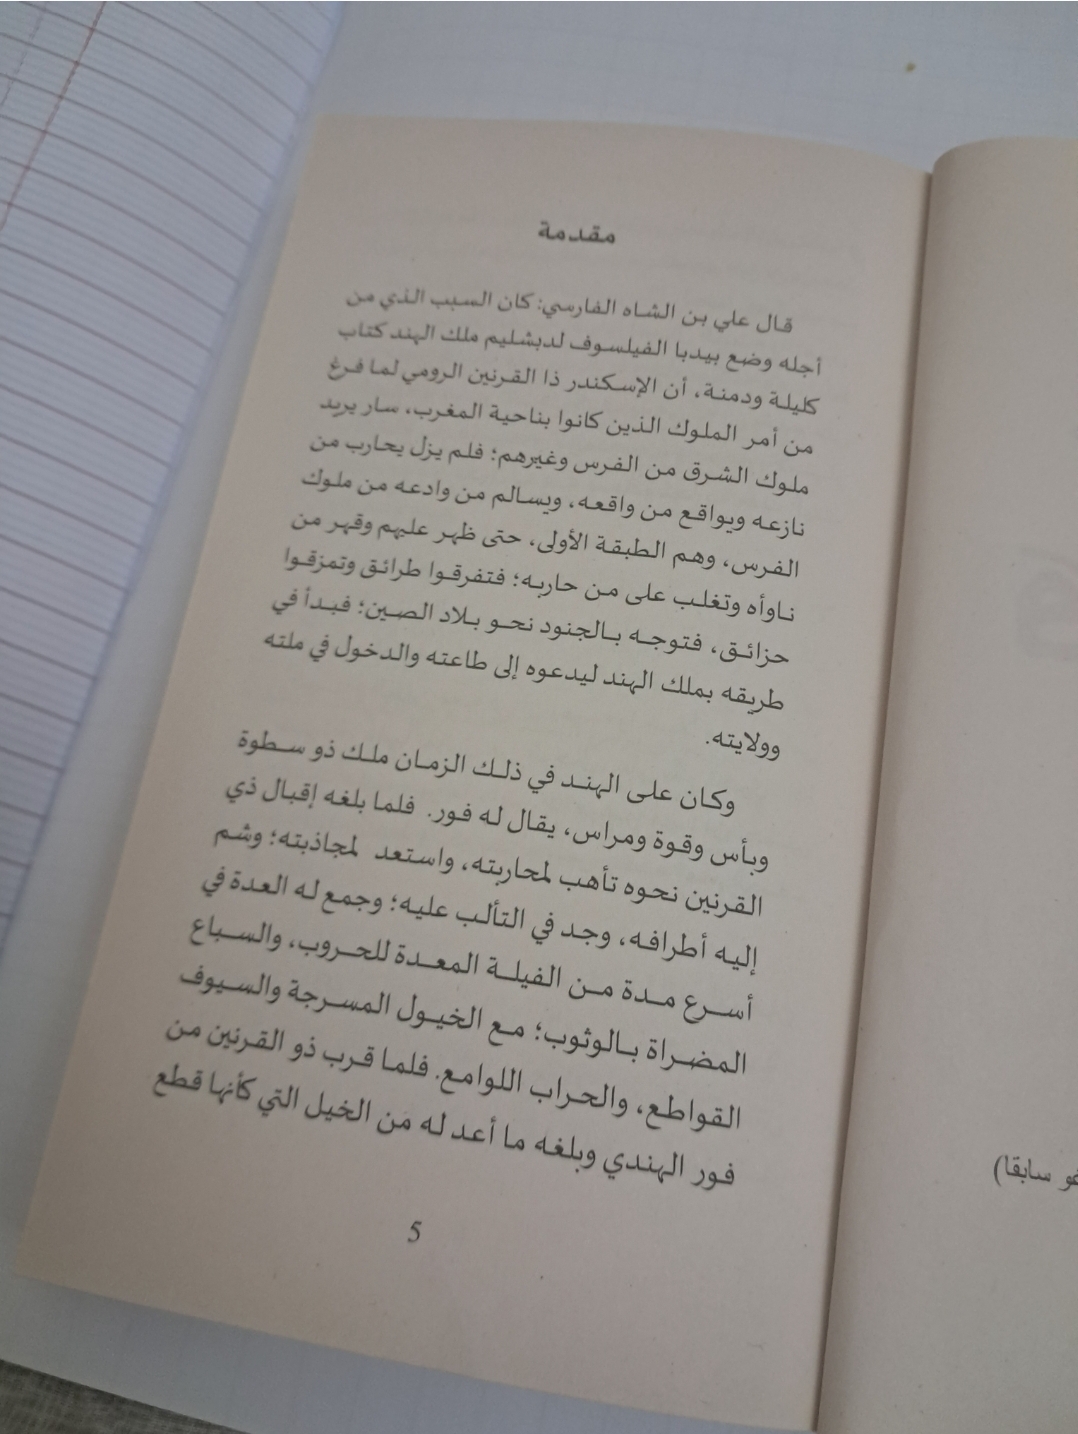 مقدمة
قال علي بن الشاه الفارسي: كان السبب الذي من
أجله وضع بيدبا الفيلسوف لدبشليم ملك الهند كتاب
كليلة ودمنة، أن الإسكندر ذا القرنين الرومي لما فرغ
من أمر الملوك الذين كانوا بناحية المغرب، سار يريد
ملوك الشرق من الفرس وغيرهم؛ فلم يزل يحارب من
نازعه ويواقع من واقعه، ويسالم من وادعه من ملوك
الفرس، وهم الطبقة الأولى، حتى ظهر عليهم وقهر من
ناوأه وتغلب على من حاربه؛ فتفرقوا طرائق وتمزقوا
حزائق، فتوجه بالجنود نحو بلاد الصين؛ فبدأ في
طريقه بملك الهند ليدعوه إلى طاعته والدخول في ملته
وولايته.
وكان على الهند في ذلك الزمان ملك ذو سطوة
وبأس وقوة ومراس، يقال له فور. فلما بلغه إقبال ذي
القرنين نحوه تأهب لمحاربته، واستعد لمجاذبته؛ وشم
إليه أطرافه، وجد في التألب عليه؛ وجمع له العدة في
أسرع مدة من الفيلة المعدة للحروب، والسباع
المضراة بالوثوب؛ مع الخيول المسرجة والسيوف
القواطع، والحراب اللوامع. فلما قرب ذو القرنين من
فور الهندي وبلغه ما أعد له من الخيل التي كأنها قطع
5
سابقا)